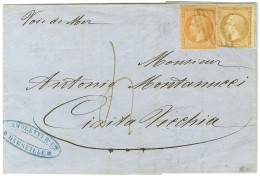 Voie de Mer
Monsieur
Antonio Montanucci
Civita Vecchia
MARSEILLE